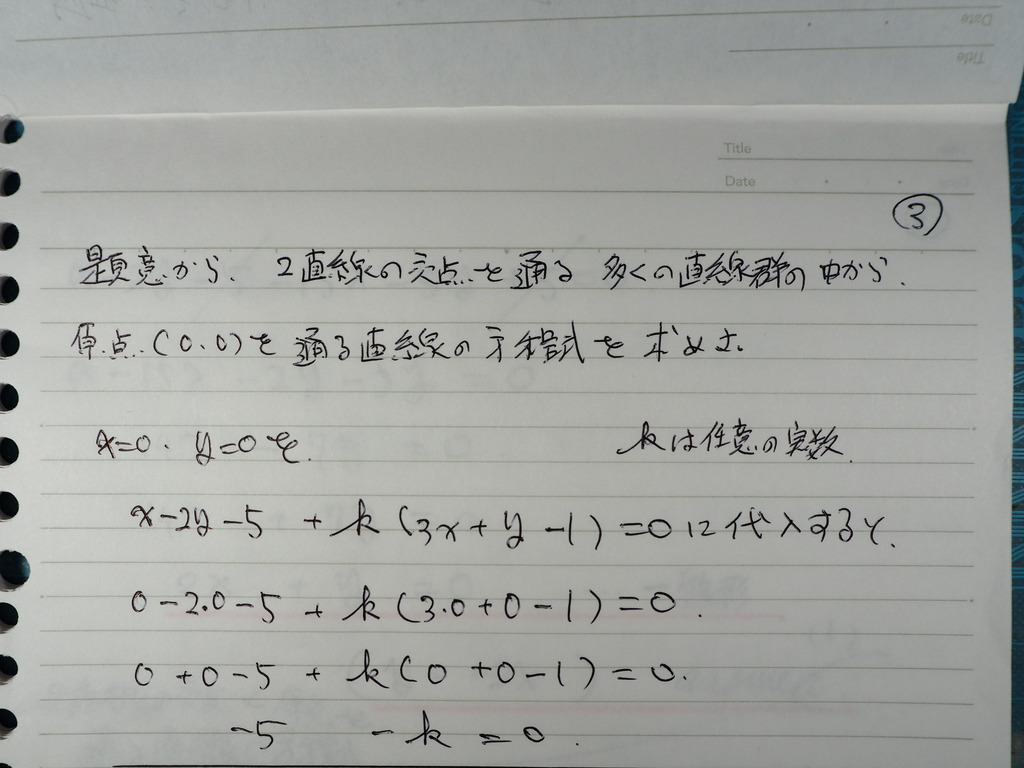 Date
Title
Title
Date
③
題意から、2直線の交点を通る 多くの直線群の中から、
原点(0,0)を通る直線の方程式を求める。
x=0. y=0を kは任意の実数
x-2y-5 + k(3x+y-1)=0に代入すると、
0-2.0-5 + k(3.0+0-1)=0.
0+0-5 + k(0+0-1)=0.
-5 -k=0.